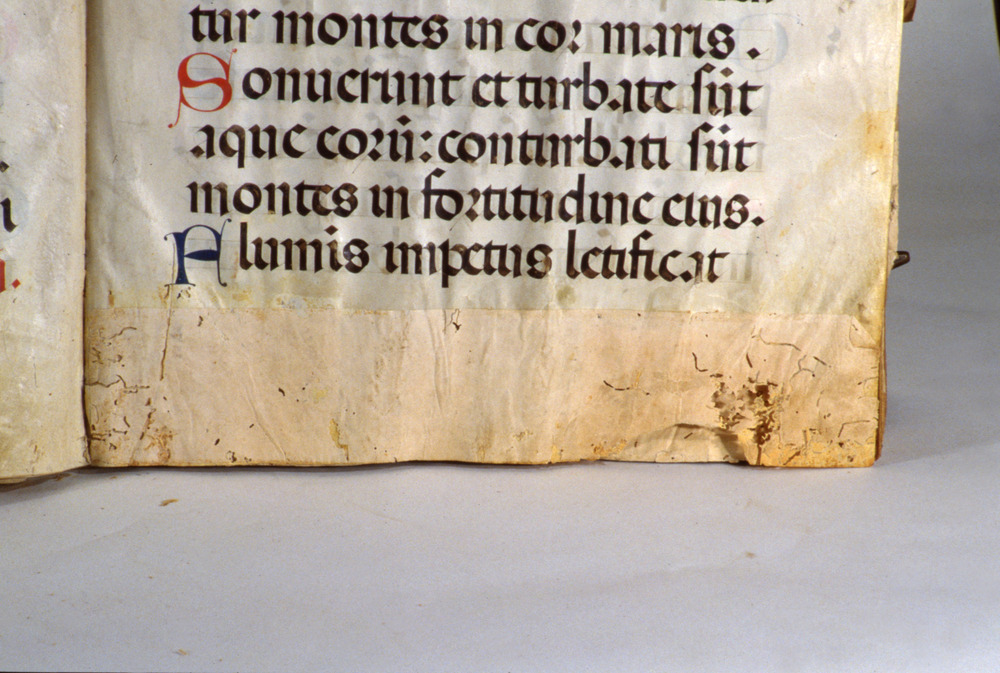 tur montes in cor maris.
Sonuerunt et turbate sūt
aque eorū: conturbati sūt
montes in fortitudine eius.
Fluminis impetus letificat